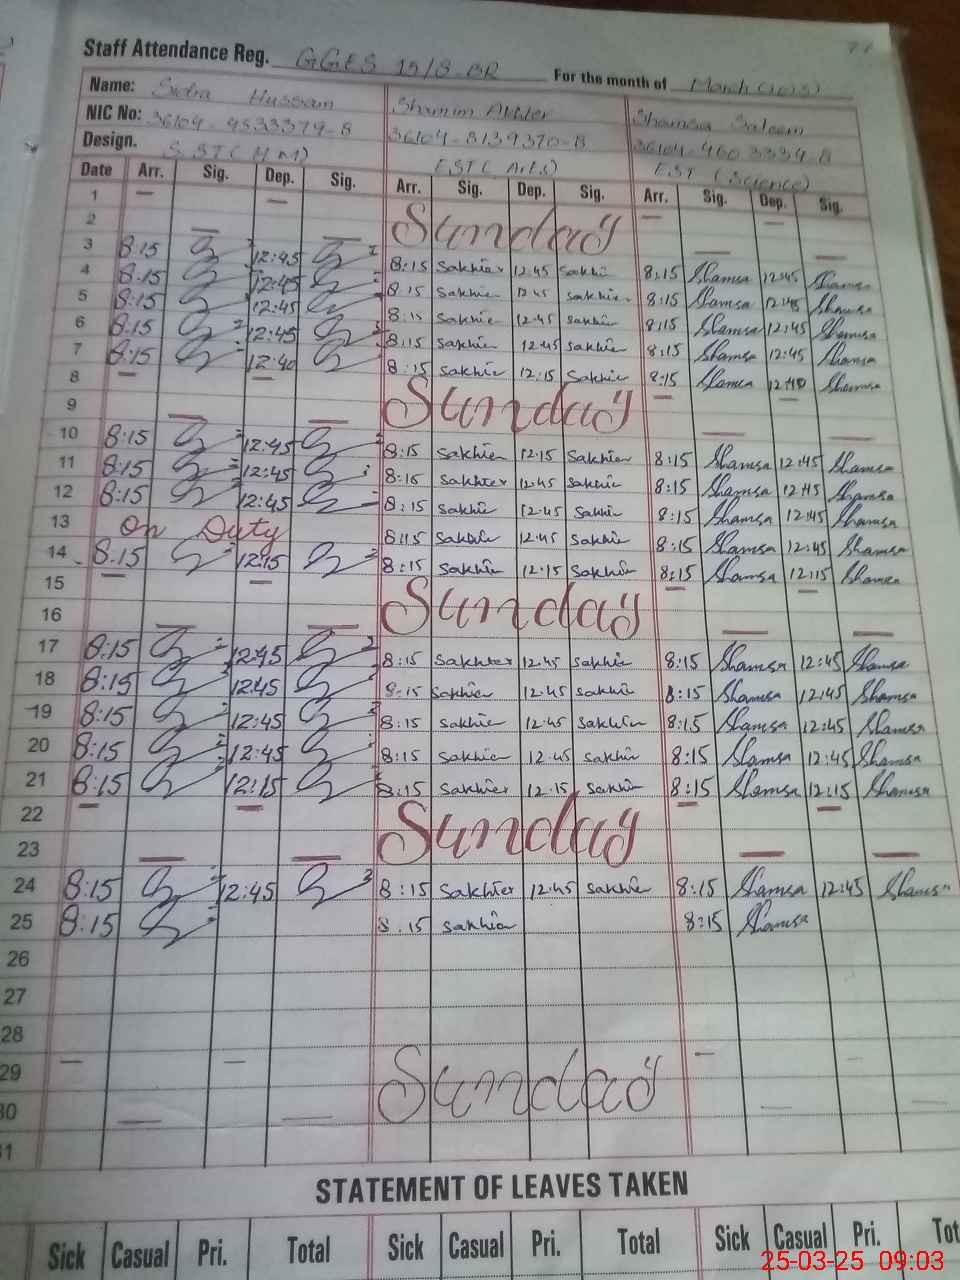 Staff Attendance Reg. GGES 15/8-BR For the month of March (2025)
Name: Sidra Hussain Shamim Akhter Shamsa Saleem
NIC No: 36104-9533379-8 36104-8139370-8 36104-4603334-8
Design. S.ST (H.M) EST (Arts) EST (Science)
Date Arr. Sig. Dep. Sig. Arr. Sig. Dep. Sig. Arr. Sig. Dep. Sig.
1
2 Sunday
3 8:15 12:45 8:15 Sakhier 12:45 Sakhie 8:15 Shamsa 12:45 Shamsa
4 8:15 12:45 8:15 Sakhie 12:45 Sakhie 8:15 Shamsa 12:45 Shamsa
5 8:15 12:45 8:15 Sakhie 12:45 Sakhie 8:15 Shamsa 12:45 Shamsa
6 8:15 12:45 8:15 Sakhie 12:45 Sakhie 8:15 Shamsa 12:45 Shamsa
7 8:15 12:40 8:15 Sakhie 12:15 Sakhie 8:15 Shamsa Shamsa
8
9 Sunday
10 8:15 12:45 8:15 Sakhier 12:15 Sakhie 8:15 Shamsa 12:45 Shamsa
11 8:15 12:45 Sakhter 12:45 Sakhie 8:15 Shamsa 12:45 Shamsa
12 8:15 12:45 8:15 Sakhie 12:45 Sakhie 8:15 Shamsa 12:45 Shamsa
13 On Duty 8:15 Sakhie 12:45 Sakhie 8:15 Shamsa 12:45 Shamsa
14 8:15 12:15 8:15 Sakhie 12:15 Sakhie 8:15 Shamsa 12:15 Shamsa
15
16 Sunday
17 8:15 12:45 8:15 Sakhter 12:45 Sakhie 8:15 Shamsa 12:45 Shamsa
18 8:15 12:45 8:15 Sakhier 12:45 Sakhie 8:15 Shamsa 12:45 Shamsa
19 8:15 12:45 8:15 Sakhie 12:45 Sakhie 8:15 Shamsa 12:45 Shamsa
20 8:15 12:45 8:15 Sakhie 12:45 Sakhie 8:15 Shamsa 12:45 Shamsa
21 8:15 12:15 8:15 Sakhier 12:15 Sakhie 8:15 Shamsa 12:15 Shamsa
22
23 Sunday
24 8:15 12:45 8:15 Sakhter 12:45 Sakhie 8:15 Shamsa 12:45 Shamsa
25 8:15 8:15 Sakhie 8:15 Shamsa
26
27
28
29
30 Sunday
31
STATEMENT OF LEAVES TAKEN
Sick Casual Pri. Total Sick Casual Pri. Total Sick Casual Pri.
25-03-25 09:03